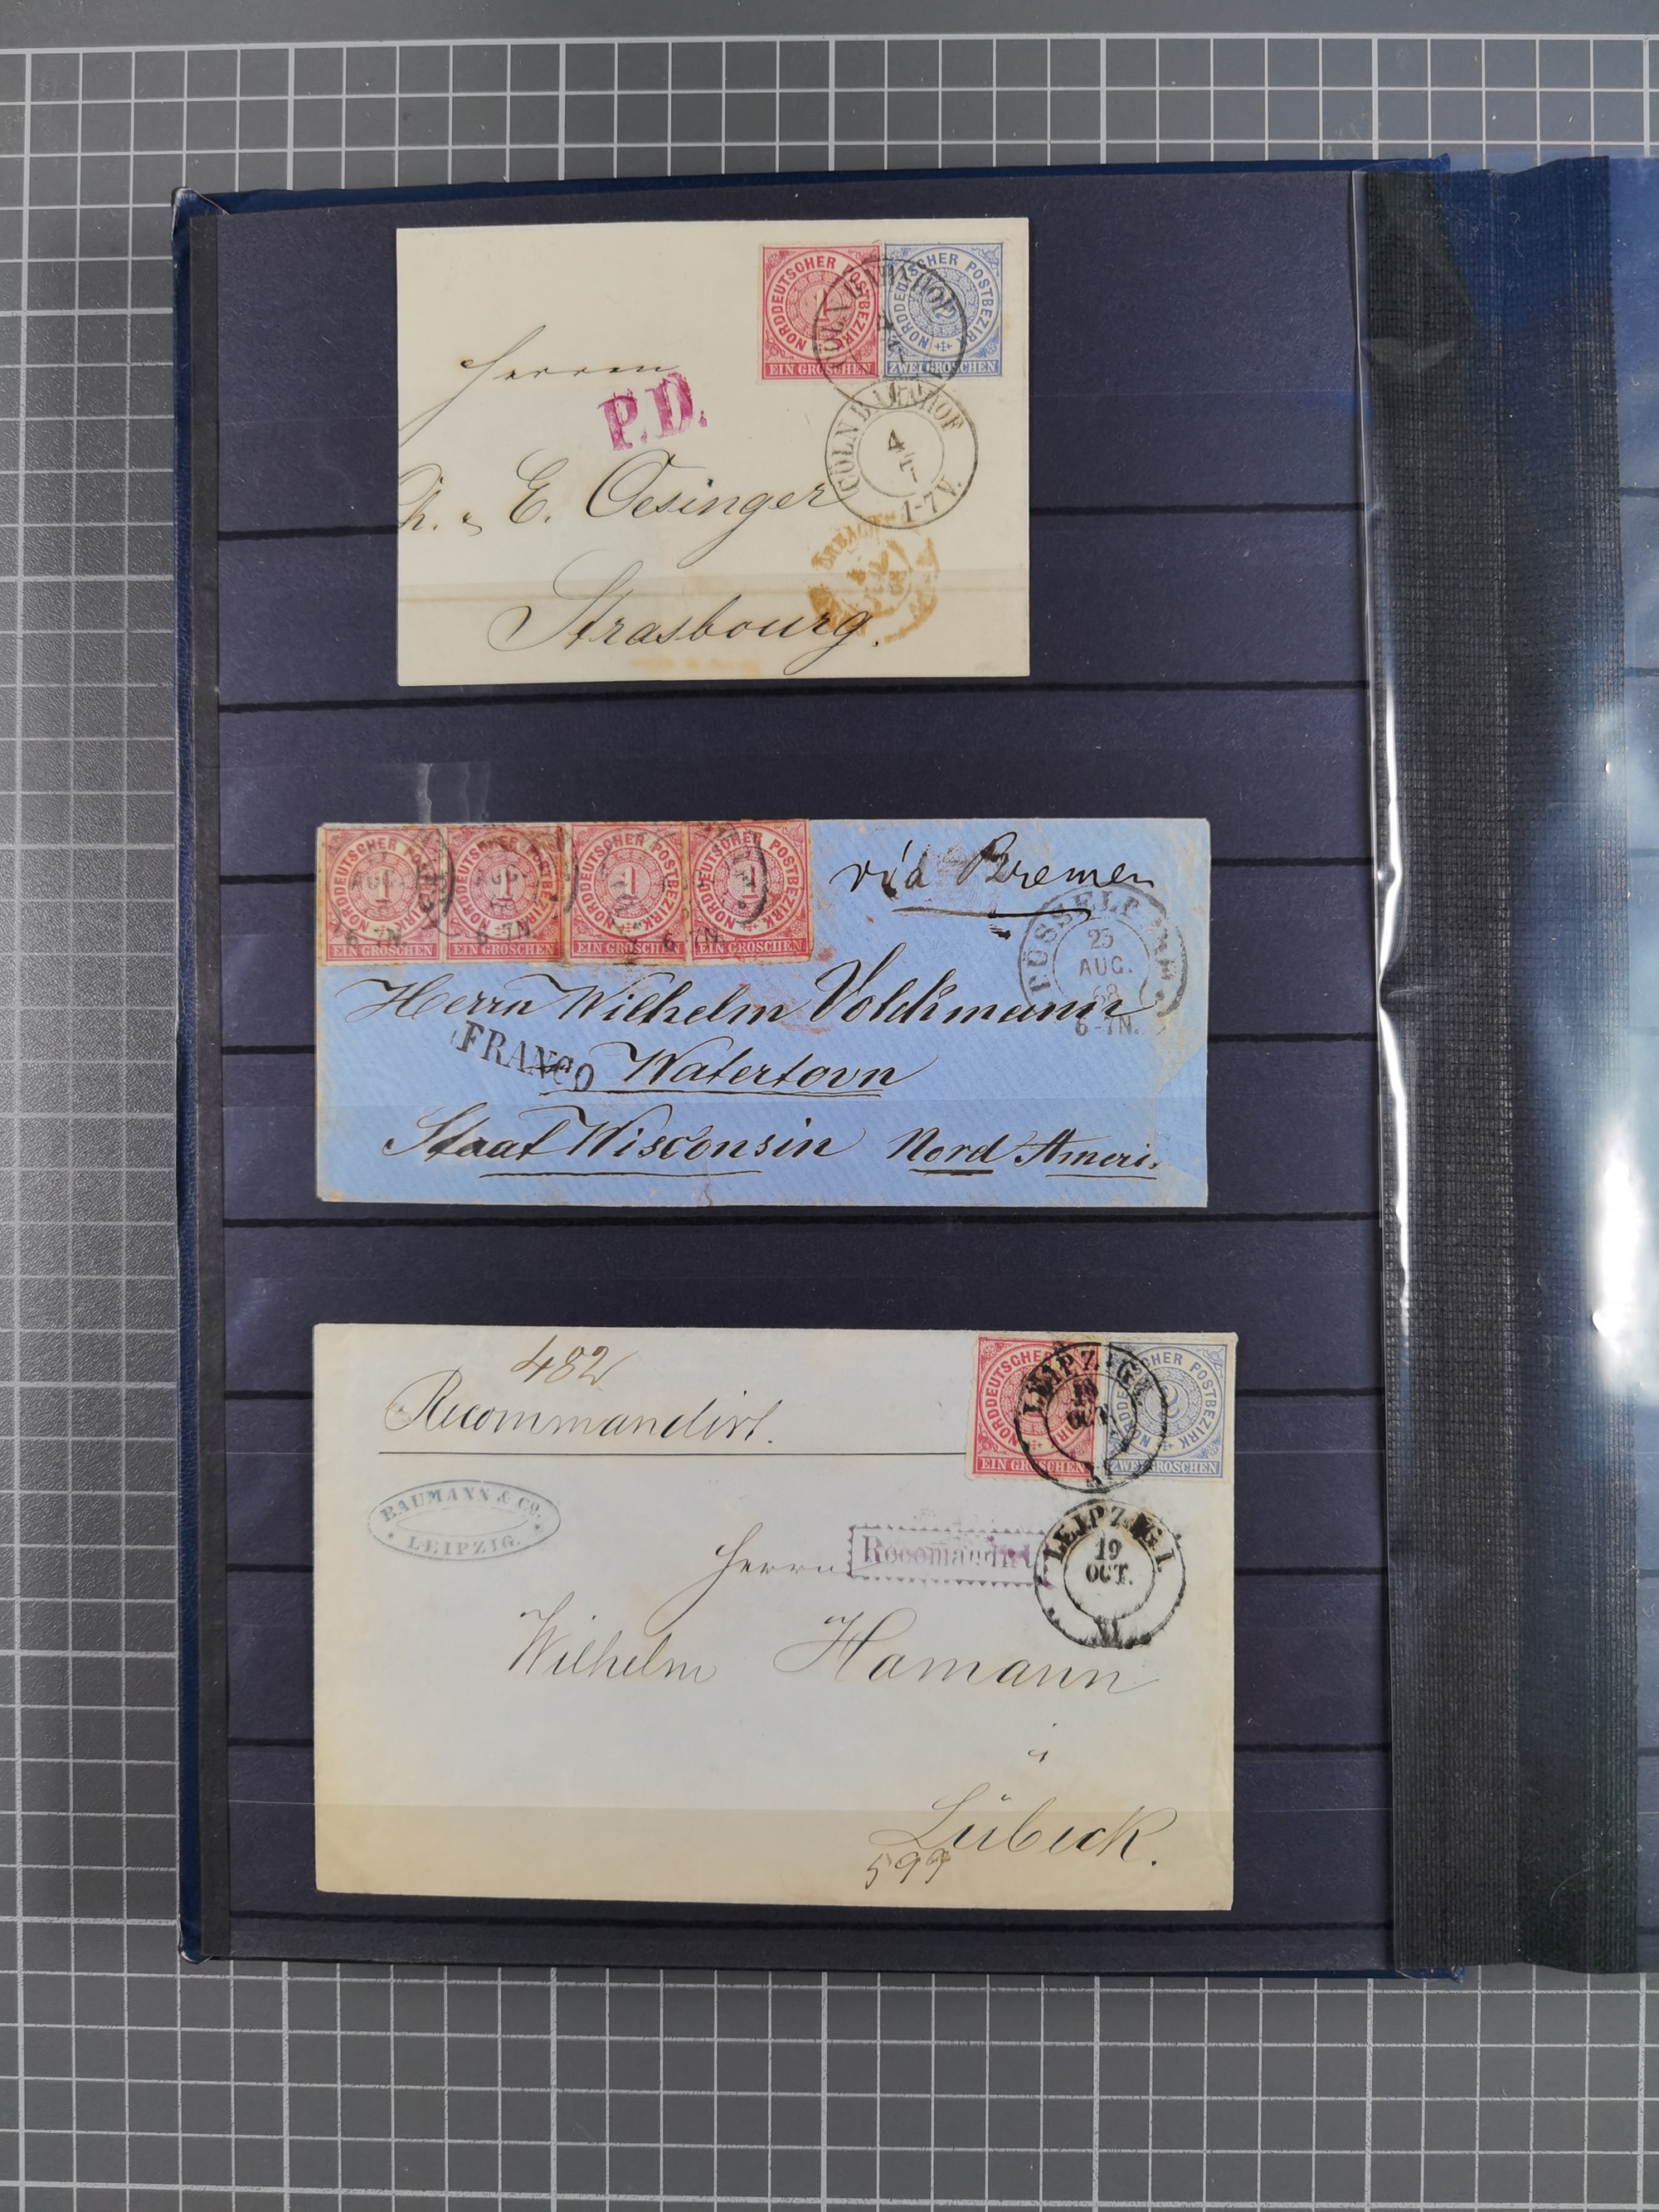 NORDDEUTSCHER POSTBEZIRK
1
EIN GROSCHEN
NORDDEUTSCHER POSTBEZIRK
2
ZWEI GROSCHEN
CÖLN BAHNHOF
Herren
P.D.
CÖLN BAHNHOF
4
7
1-7V.
E. Oesinger
Strasbourg.
NORDDEUTSCHER POSTBEZIRK
1
EIN GROSCHEN
NORDDEUTSCHER POSTBEZIRK
1
EIN GROSCHEN
NORDDEUTSCHER POSTBEZIRK
1
EIN GROSCHEN
NORDDEUTSCHER POSTBEZIRK
1
EIN GROSCHEN
AUG.
6-7N.
viá Bremen
DÜSSELD
25
AUG.
68
6-7N.
Herrn Wilhelm Volckmann
FRANCO
Watertown
Staat Wisconsin Nord Ameri.
482
Recommandirt.
NORDDEUTSCHER POSTBEZIRK
EIN GROSCHEN
NORDDEUTSCHER POSTBEZIRK
2
ZWEI GROSCHEN
LEIPZIG
19
OCT.
BAUMANN & CO.
LEIPZIG.
Herrn
Recomandirt
LEIPZIG I.
19
OCT.
VI
Wilhelm Hamann
i
Lübeck.
599